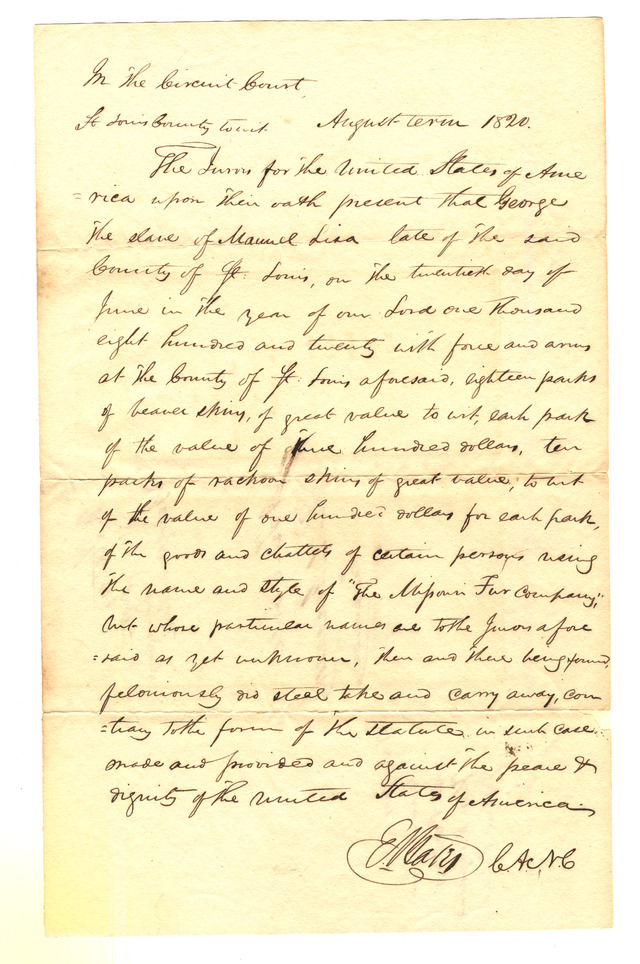 In the Circuit Court,
St Louis County to wit. August term 1820.
The Jurors for the United States of Ame
=rica upon their oath present that George
the slave of Manuel Lisa late of the said
County of St. Louis, on the twentieth day of
June in the year of our Lord one thousand
eight hundred and twenty with force and arms
at the County of St. Louis aforesaid, eighteen packs
of beaver skins, of great value to wit, each pack
of the value of hundred dollars, ten
packs of rackoon skins of great value, to wit
of the value of one hundred dollars for each pack,
of the goods and chattels of certain persons using
the name and style of "The Missouri Fur Company",
but whose particular names are to the Jurors afore
=said as yet unknown, then and there being found,
feloniously did steal take and carry away, con
=trary to the form of the statute in such case
made and provided and against the peace &
dignity of the United States of America.
E. Bates C.A.N.C